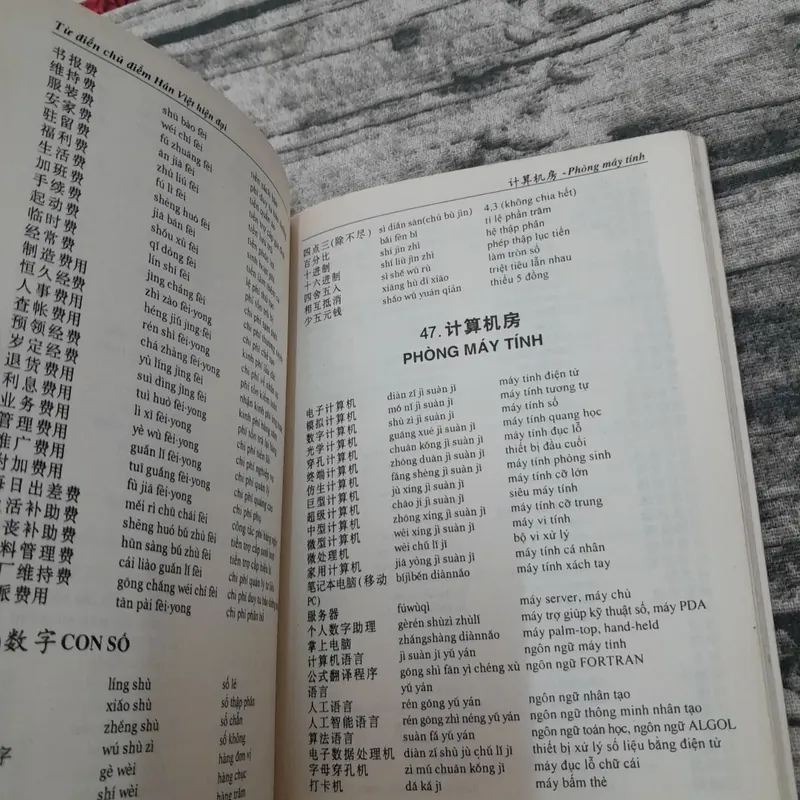 Từ điển chủ điểm Hán Việt hiện đại
书报费 shū bào fèi
维持费 wéi chí fèi
服装费 fú zhuāng fèi
安家费 ān jiā fèi
驻留费 zhù liú fèi
福利费 fú lì fèi
生活费 shēng huó fèi
加班费 jiā bān fèi
手续费 shǒu xù fèi
起动费 qǐ dòng fèi
临时费 lín shí fèi
经常费 jīng cháng fèi
制造费用 zhì zào fèi·yong
恒久经费 héng jiǔ jīng·fèi
人事费用 rén shì fèi·yong
查帐费用 chá zhàng fèi·yong
预领经费 yù lǐng jīng fèi
岁定经费 suì dìng jīng fèi
退货费用 tuì huò fèi·yong
利息费用 lì xī fèi·yong
业务费用 yè wù fèi·yong
管理费用 guǎn lǐ fèi·yong chi phí quản lý
推广费用 tuī guǎng fèi·yong chi phí quảng cáo
附加费用 fù jiā fèi·yong chi phí phụ
每日出差费 měi rì chū chāi fèi
生活补助费 shēng huó bǔ zhù fèi
丧补助费 hūn sàng bǔ zhù fèi
料管理费 cái liào guǎn lǐ fèi
厂维持费 gōng chǎng wéi chí fèi
派费用 tān pài fèi·yong chi phí phân bổ
数字 CON SỐ
líng shù số lẻ
xiǎo shù số thập phân
zhěng shù số chẵn
wú shù zì số không
字 gè wèi hàng đơn vị
shí wèi hàng chục
hàng trăm
计算机房 - Phòng máy tính
四点三(除不尽) sì diǎn sān(chú bù jìn) 4,3 (không chia hết)
百分比 bǎi fēn bǐ tỉ lệ phần trăm
十进制 shí jìn zhì hệ thập phân
十六进制 shí liù jìn zhì phép thập lục tiến
四舍五入 sì shě wǔ rù làm tròn số
相互抵消 xiāng hù dǐ xiāo triệt tiêu lẫn nhau
少五元钱 shǎo wǔ yuán qián thiếu 5 đồng
47. 计算机房
PHÒNG MÁY TÍNH
电子计算机 diàn zǐ jì suàn jī máy tính điện tử
模拟计算机 mó nǐ jì suàn jī máy tính tương tự
数字计算机 shù zì jì suàn jī máy tính số
光学计算机 guāng xué jì suàn jī máy tính quang học
穿孔计算机 chuān kǒng jì suàn jī máy tính đục lỗ
终端计算机 zhōng duān jì suàn jī thiết bị đầu cuối
仿生计算机 fǎng shēng jì suàn jī máy tính phỏng sinh
巨型计算机 jù xíng jì suàn jī máy tính cỡ lớn
超级计算机 chāo jí jì suàn jī siêu máy tính
中型计算机 zhōng xíng jì suàn jī máy tính cỡ trung
微型计算机 wēi xíng jì suàn jī máy vi tính
微处理机 wēi chǔ lǐ jī bộ vi xử lý
家用计算机 jiā yòng jì suàn jī máy tính cá nhân
笔记本电脑(移动 bǐjìběn diànnǎo máy tính xách tay
PC)
服务器 fúwùqì máy server, máy chủ
个人数字助理 gèrén shùzì zhùlǐ máy trợ giúp kỹ thuật số, máy PDA
掌上电脑 zhǎngshàng diànnǎo máy palm-top, hand-held
计算机语言 jì suàn jī yǔ yán ngôn ngữ máy tính
公式翻译程序 gōng shì fān yì chéng xù ngôn ngữ FORTRAN
语言 yǔ yán
人工语言 rén gōng yǔ yán ngôn ngữ nhân tạo
人工智能语言 rén gōng zhì néng yǔ yán ngôn ngữ thông minh nhân tạo
算法语言 suàn fǎ yǔ yán ngôn ngữ toán học, ngôn ngữ ALGOL
电子数据处理机 diàn zǐ shù jù chǔ lǐ jī thiết bị xử lý số liệu bằng điện tử
字母穿孔机 zì mǔ chuān kǒng jī máy đục lỗ chữ cái
打卡机 dǎ kǎ jī máy bấm thẻ